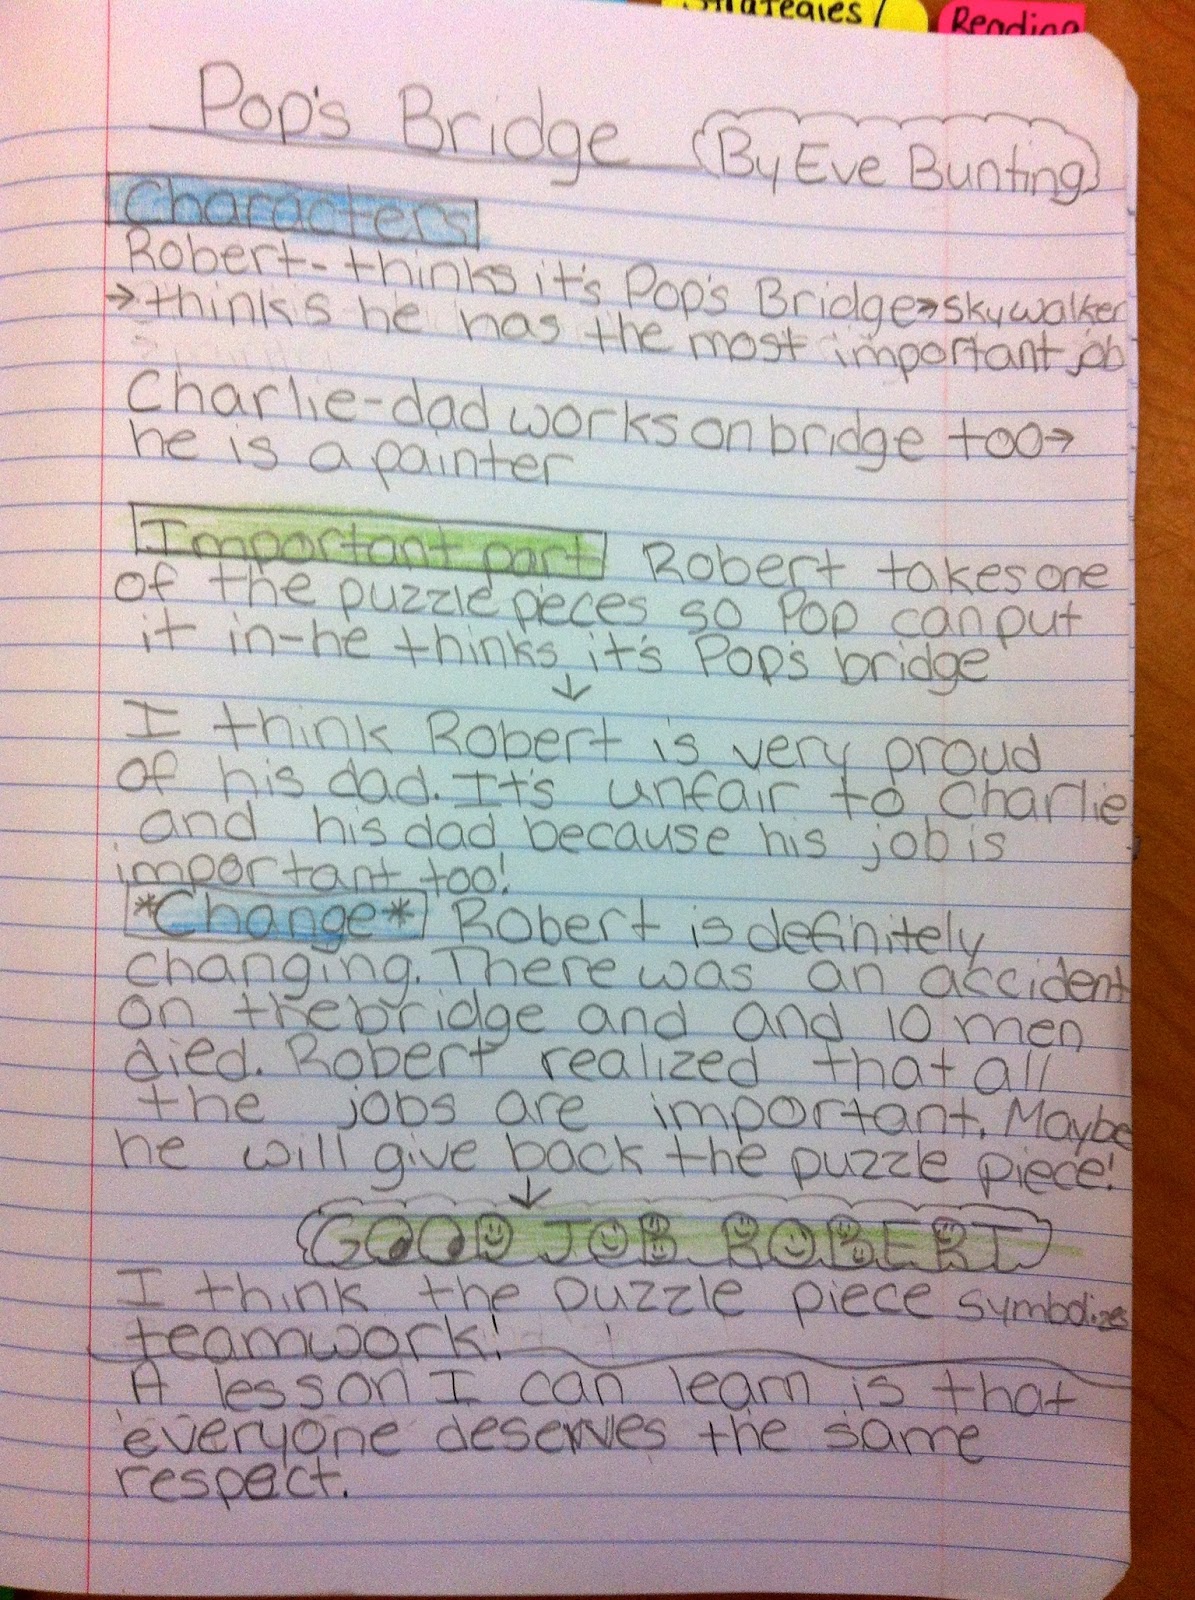 Strategies/
Reading
Pop's Bridge (By Eve Bunting)
Characters
Robert- thinks it's Pop's Bridge→skywalker
→thinks he has the most important job
Charlie-dad works on bridge too→
he is a painter
Important part Robert takes one
of the puzzle pieces so Pop can put
it in-he thinks it's Pop's bridge
↓
I think Robert is very proud
of his dad. It's unfair to Charlie
and his dad because his job is
important too!
*Change* Robert is definitely
changing. There was an accident
on the bridge and and 10 men
died. Robert realized that all
the jobs are important. Maybe
he will give back the puzzle piece!
↓
GOOD JOB ROBERT
I think the puzzle piece symbolizes
teamwork!
A lesson I can learn is that
everyone deserves the same
respect.